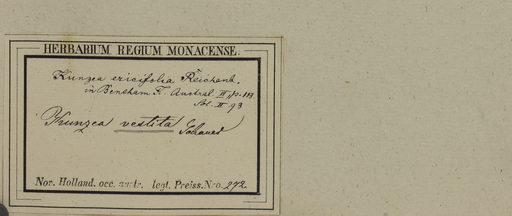 HERBARIUM REGIUM MONACENSE.
Kunzea ericifolia Reichenb.
in Bentham F. Austral II p. 113
Sol. II 93
Kunzea vestita Schauer
Nov. Holland. occ. austr. legt. Preiss. Nro. 272